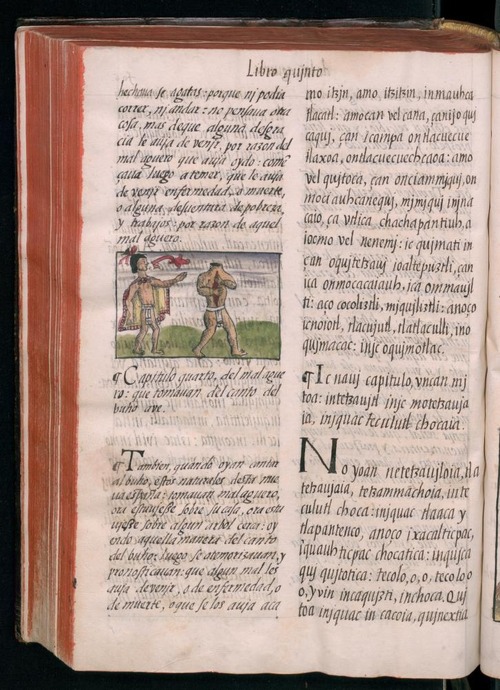 Libro quinto
hechaua se agatas: porque nj podia
correr, nj andar: no pensaua otra
cosa, mas de que alguna desgra
cia le auja de venjr, por razon del
mal aguero que auja oydo: come
çaua luego atemer, que le auja
de venjr enfermedad, o muerte,
o alguna, desuentura de pobreza,
y trabajos: por razon de aquel
mal aguero.
¶ Capitulo quarto, del mal ague
ro: que tomauan del canto del
buho ave.
¶ Tambien, quando oyan cantar
al buho, estos naturales desta nue
ua españa: tomauan mal aguero,
ora estuujese sobre su casa, ora estu
ujese sobre algun arbol cerca: oy
endo aquella manera del canto
del buho: luego se atemorizauan, y
pronosticauan: que algun mal les
auja de venjr, o de enfermedad, o
de muerte, o que se los auja aca
mo itzin, amo itzitzin, inmauhca
tlacatl: amo can vel cana, çanijo qui
caquj, çan icampa ontlacuecue
tlaxoa, ontlacuecuechcaoa: amo
vel qujtoca, çan onciammjquj, on
moci auhcanequj, mjmjquj injma
caio, ça vilica chachapantiuh, a
iocmo vel nenemj: ic qujmati in
çan oqujtetzauj ioaltepuztli, çan
ica onmocacaiauh, ica onmaujl
ti: aço cocoliztli, mjqujliztli: anoço
icnoiotl, tlacujutl, tlatlaculli, ino
qujmacac: injc oqujmotlac.
¶ Ic nauj capitulo, vncan mj
toa: intetzaujtl injc motetzauja
ia, injquac teculutl chocaia:
No yoan netetzaujloia, tla
tetzaujaia, tetzammachoia, in te
culutl choca: injquac tlaaca y
tlapantenco, anoço ixacalticpac,
iquauhticpac chocatica: inqujca
quj qujiotica: tecolo, o, o, tecolo o
o, yvin incaqujzti, inchoca. Quj
toa injquac in cacoia, qujnextia